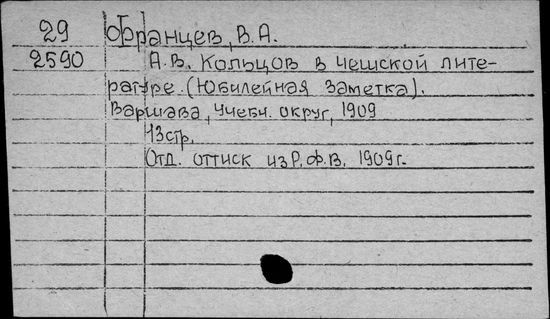 29 Францев, В.А.
2590 А.В. Кольцов в чешской лите-
ратуре. (Юбилейная заметка).
Варшава, Учебн. округ, 1909
13стр.
Отд. оттиск из Р.Ф.В. 1909г.